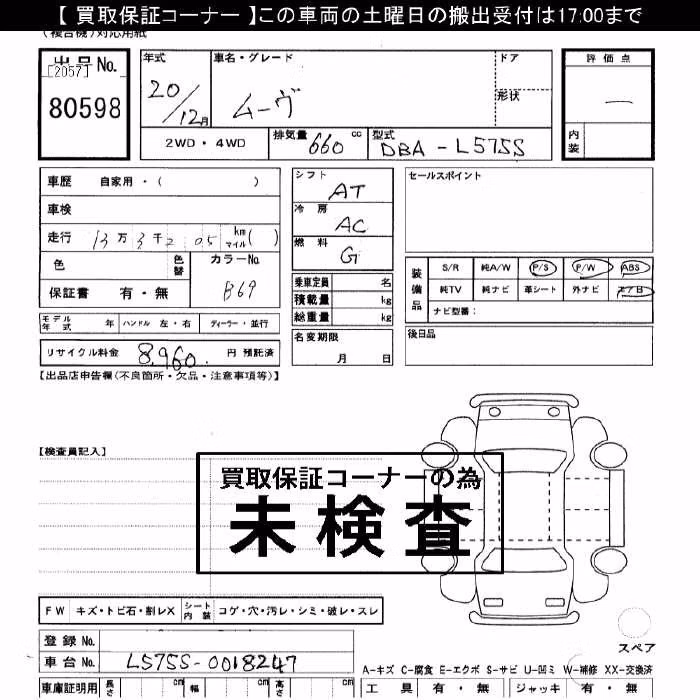 【 買取保証コーナー 】この車両の土曜日の搬出受付は17:00まで
(複合機)対応用紙
出品No.
[2057]
80598
年式
20/12月
車名・グレード
ムーヴ
ドア
形状
評価点
—
内装
2WD・4WD
排気量 660 cc
型式 DBA-L575S
車歴 自家用・( )
車検
走行 13万3千2 05 km マイル( )
色
色替
カラーNo. B69
保証書 有・無
モデル年式 年 ハンドル 左・右 ディーラー・並行
リサイクル料金 8,960 円 預託済
シフト AT
冷房 AC
燃料 G
乗車定員 名
積載量 kg
総重量 kg
名変期限
月 日
セールスポイント
装備品
S/R 純A/W P/S P/W ABS
純TV 純ナビ 革シート 外ナビ エアB
ナビ型番:
後日品
【出品店申告欄(不良箇所・欠品・注意事項等)】
【検査員記入】
買取保証コーナーの為
未検査
FW キズ・トビ石・割レX シート内装 コゲ・穴・汚レ・シミ・破レ・スレ
登録 No.
車台 No. L575S-0018247
車庫証明用 長さ cm 幅 cm 高さ cm
スペア
A-キズ C-腐食 E-エクボ S-サビ U-凹ミ W-補修 XX-交換済
工具 有・無 ジャッキ 有・無